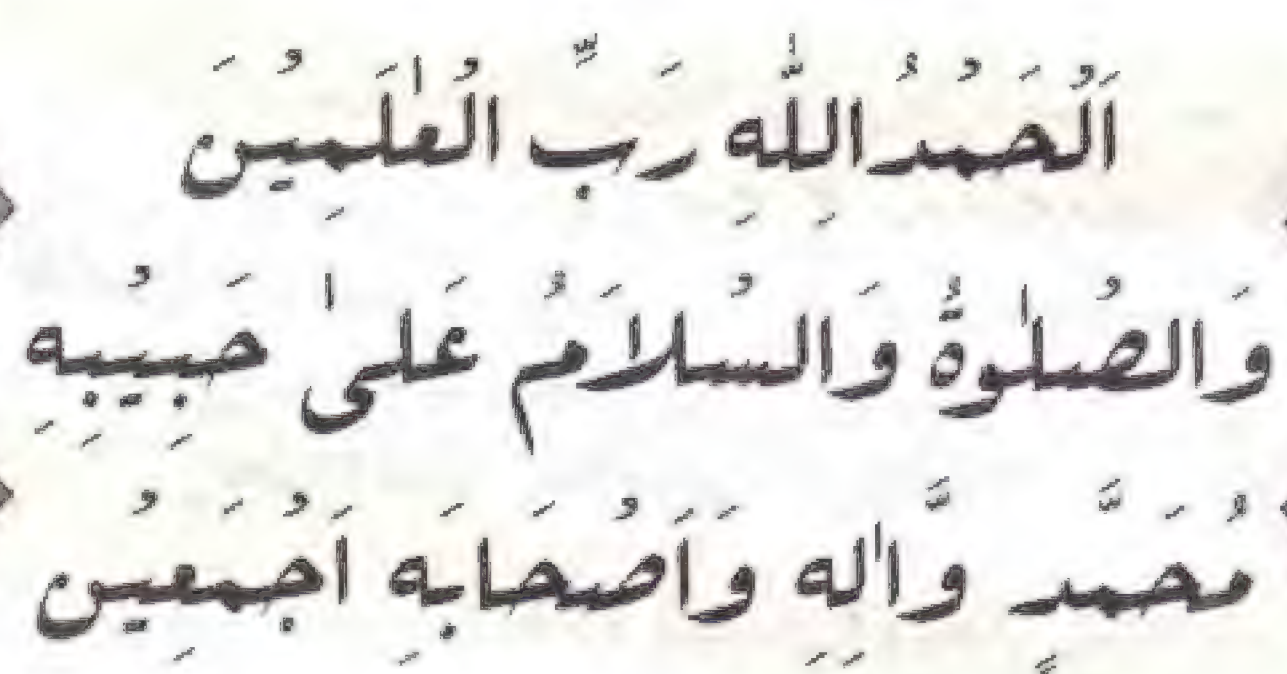 اَلْحَمْدُ اللّٰهِ رَبِّ الْعٰلَمِيْنَ
وَالصْلٰوةُ وَالسْلَامُ عَلىٰ حَبِيْبِهِ
مُحَمَّدٍ وَّاٰلِهِ وَاَصْحَابِهِ اَجْمَعِيْن